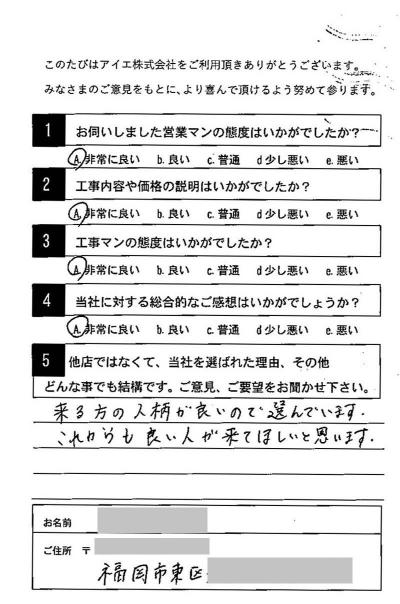 このたびはアイエ株式会社をご利用頂きありがとうございます。
みなさまのご意見をもとに、より喜んで頂けるよう努めて参ります。
1 お伺いしました営業マンの態度はいかがでしたか?
A.非常に良い b.良い c.普通 d少し悪い e.悪い
2 工事内容や価格の説明はいかがでしたか?
A.非常に良い b.良い c.普通 d少し悪い e.悪い
3 工事マンの態度はいかがでしたか?
A.非常に良い b.良い c.普通 d少し悪い e.悪い
4 当社に対する総合的なご感想はいかがでしょうか?
A.非常に良い b.良い c.普通 d少し悪い e.悪い
5 他店ではなくて、当社を選ばれた理由、その他
どんな事でも結構です。ご意見、ご要望をお聞かせ下さい。
来る方の人柄が良いので選んでいます.
これからも良い人が来てほしいと思います.
お名前
ご住所 〒
福岡市東区